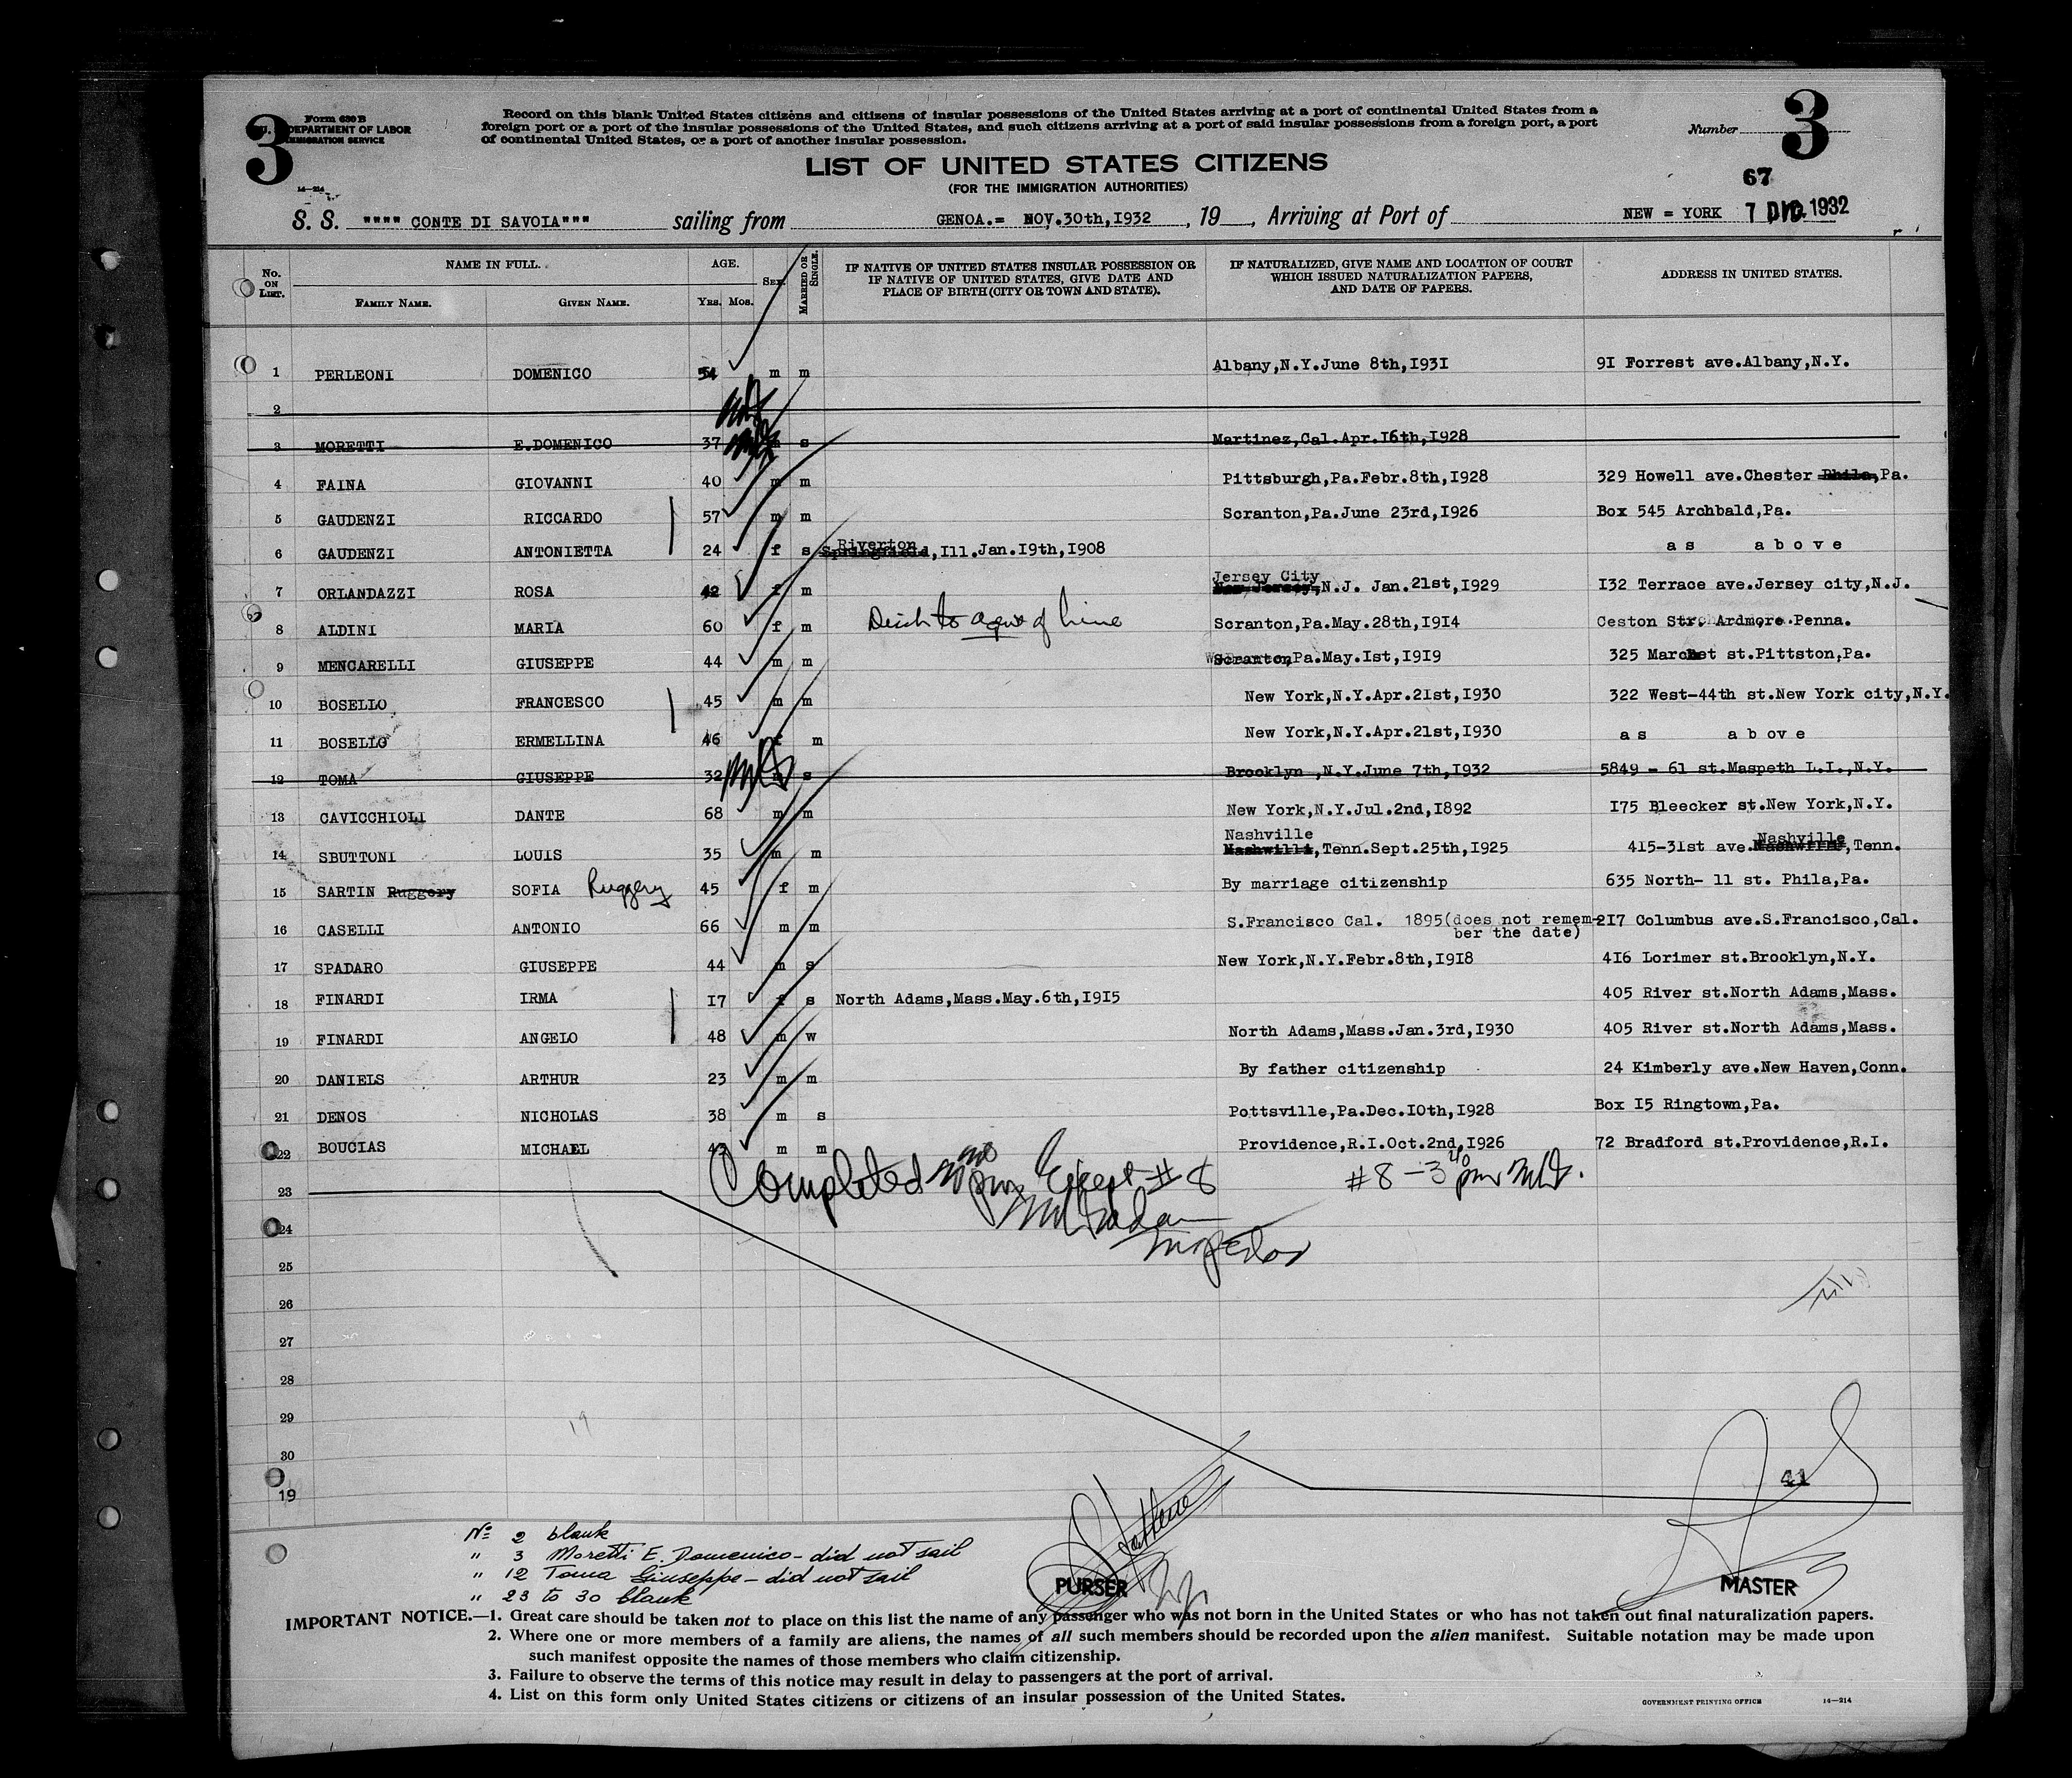 3
Form 630 B
U. S. DEPARTMENT OF LABOR
IMMIGRATION SERVICE
14—214
Record on this blank United States citizens and citizens of insular possessions of the United States arriving at a port of continental United States from a
foreign port or a port of the insular possessions of the United States, and such citizens arriving at a port of said insular possessions from a foreign port, a port
of continental United States, or a port of another insular possession.
Number 3
LIST OF UNITED STATES CITIZENS
(FOR THE IMMIGRATION AUTHORITIES)
67
S. S. """" CONTE DI SAVOIA""" sailing from GENOA.= NOV.30th,1932 , 19 , Arriving at Port of NEW = YORK 7 DIC. 1932
No. ON LIST. NAME IN FULL. AGE. SEX. MARRIED OR SINGLE. IF NATIVE OF UNITED STATES INSULAR POSSESSION OR IF NATIVE OF UNITED STATES, GIVE DATE AND PLACE OF BIRTH (CITY OR TOWN AND STATE). IF NATURALIZED, GIVE NAME AND LOCATION OF COURT WHICH ISSUED NATURALIZATION PAPERS, AND DATE OF PAPERS. ADDRESS IN UNITED STATES.
FAMILY NAME. GIVEN NAME. YRS. MOS.
1 PERLEONI DOMENICO 54 m m Albany,N.Y.June 8th,I93I 9I Forrest ave.Albany,N.Y.
2
3 MORETTI E.DOMENICO 37 s Martinez,Cal.Apr.I6th,I928
4 FAINA GIOVANNI 40 m m Pittsburgh,Pa.Febr.8th,I928 329 Howell ave.Chester Phila,Pa.
5 GAUDENZI RICCARDO 57 m m Scranton,Pa.June 23rd,I926 Box 545 Archbald,Pa.
6 GAUDENZI ANTONIETTA 24 f s Springfield Riverton,Ill.Jan.I9th,I908 as above
7 ORLANDAZZI ROSA 42 f m New Jersey, Jersey City N.J. Jan.21st,I929 I32 Terrace ave.Jersey city,N.J.
8 ALDINI MARIA 60 f m Scranton,Pa.May.28th,I9I4 Ceston Str. Ardmore.Penna.
9 MENCARELLI GIUSEPPE 44 m m Scranton,Pa.May.Ist,I9I9 325 Market st.Pittston,Pa.
10 BOSELLO FRANCESCO 45 m m New York,N.Y.Apr.2Ist,I930 322 West-44th st.New York city,N.Y.
11 BOSELLO ERMELLINA 46 f m New York,N.Y.Apr.2Ist,I930 as above
12 TOMA GIUSEPPE 32 s Brooklyn ,N.Y.June 7th,I932 5849 - 61 st.Maspeth L.I.,N.Y.
13 CAVICCHIOLI DANTE 68 m m New York,N.Y.Jul.2nd,I892 I75 Bleecker st.New York,N.Y.
14 SBUTTONI LOUIS 35 m m Nashwilli Nashville,Tenn.Sept.25th,I925 4I5-3Ist ave.Nashville,Tenn.
15 SARTIN Ruggery SOFIA Ruggery 45 f m By marriage citizenship 635 North- 11 st. Phila,Pa.
16 CASELLI ANTONIO 66 m m S.Francisco Cal. I895(does not remem- 2I7 Columbus ave.S.Francisco,Cal.
ber the date)
17 SPADARO GIUSEPPE 44 m s New York,N.Y.Febr.8th,I9I8 4I6 Lorimer st.Brooklyn,N.Y.
18 FINARDI IRMA I7 f s North Adams,Mass.May.6th,I9I5 405 River st.North Adams,Mass.
19 FINARDI ANGELO 48 m w North Adams,Mass.Jan.3rd,I930 405 River st.North Adams,Mass.
20 DANIELS ARTHUR 23 m m By father citizenship 24 Kimberly ave.New Haven,Conn.
21 DENOS NICHOLAS 38 m s Pottsville,Pa.Dec.I0th,I928 Box I5 Ringtown,Pa.
22 BOUCIAS MICHAEL 43 m m Providence,R.I.Oct.2nd,I926 72 Bradford st.Providence,R.I.
Completed pm Except #8
#8 - 3 40 pm
23
Inspector
24
25
26
27
28
29
19
30
41
19
No 2 blank
" 3 Moretti E. Domenico - did not sail
" 12 Toma Giuseppe - did not sail
" 23 to 30 blank
PURSER
MASTER
IMPORTANT NOTICE.—1. Great care should be taken not to place on this list the name of any passenger who was not born in the United States or who has not taken out final naturalization papers.
2. Where one or more members of a family are aliens, the names of all such members should be recorded upon the alien manifest. Suitable notation may be made upon
such manifest opposite the names of those members who claim citizenship.
3. Failure to observe the terms of this notice may result in delay to passengers at the port of arrival.
4. List on this form only United States citizens or citizens of an insular possession of the United States.
GOVERNMENT PRINTING OFFICE 14—214